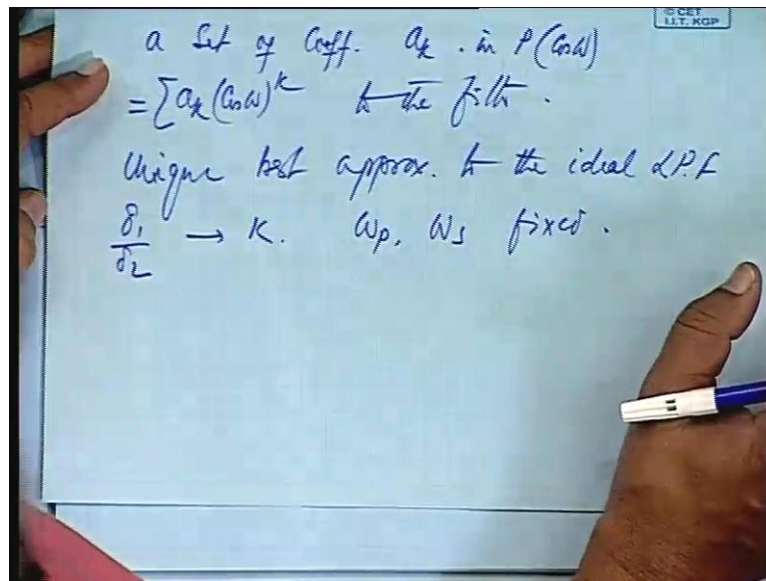 © CET
I.I.T. KGP
a Set of Coeff. aₖ. in P(Cosω)
= Σaₖ(Cosω)ᵏ to the filtr.
Unique best approx. to the ideal LP.F
δ₁/δ₂ → K. ωₚ, ωₛ fixed.